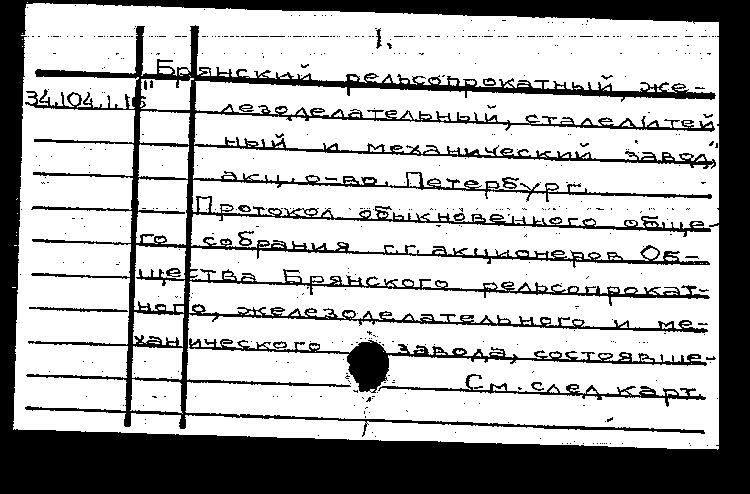 1.
"Брянский рельсопрокатный, же-
34.104.1.16 лезоделательный, сталелитей
ный и механический завод",
акц. о-во. Петербург.
Протокол обыкновенного обще-
го собрания г.г. акционеров Об-
щества Брянского рельсопрокат-
ного, железоделательного и ме-
ханического завода, состоявше-
См. след. карт.